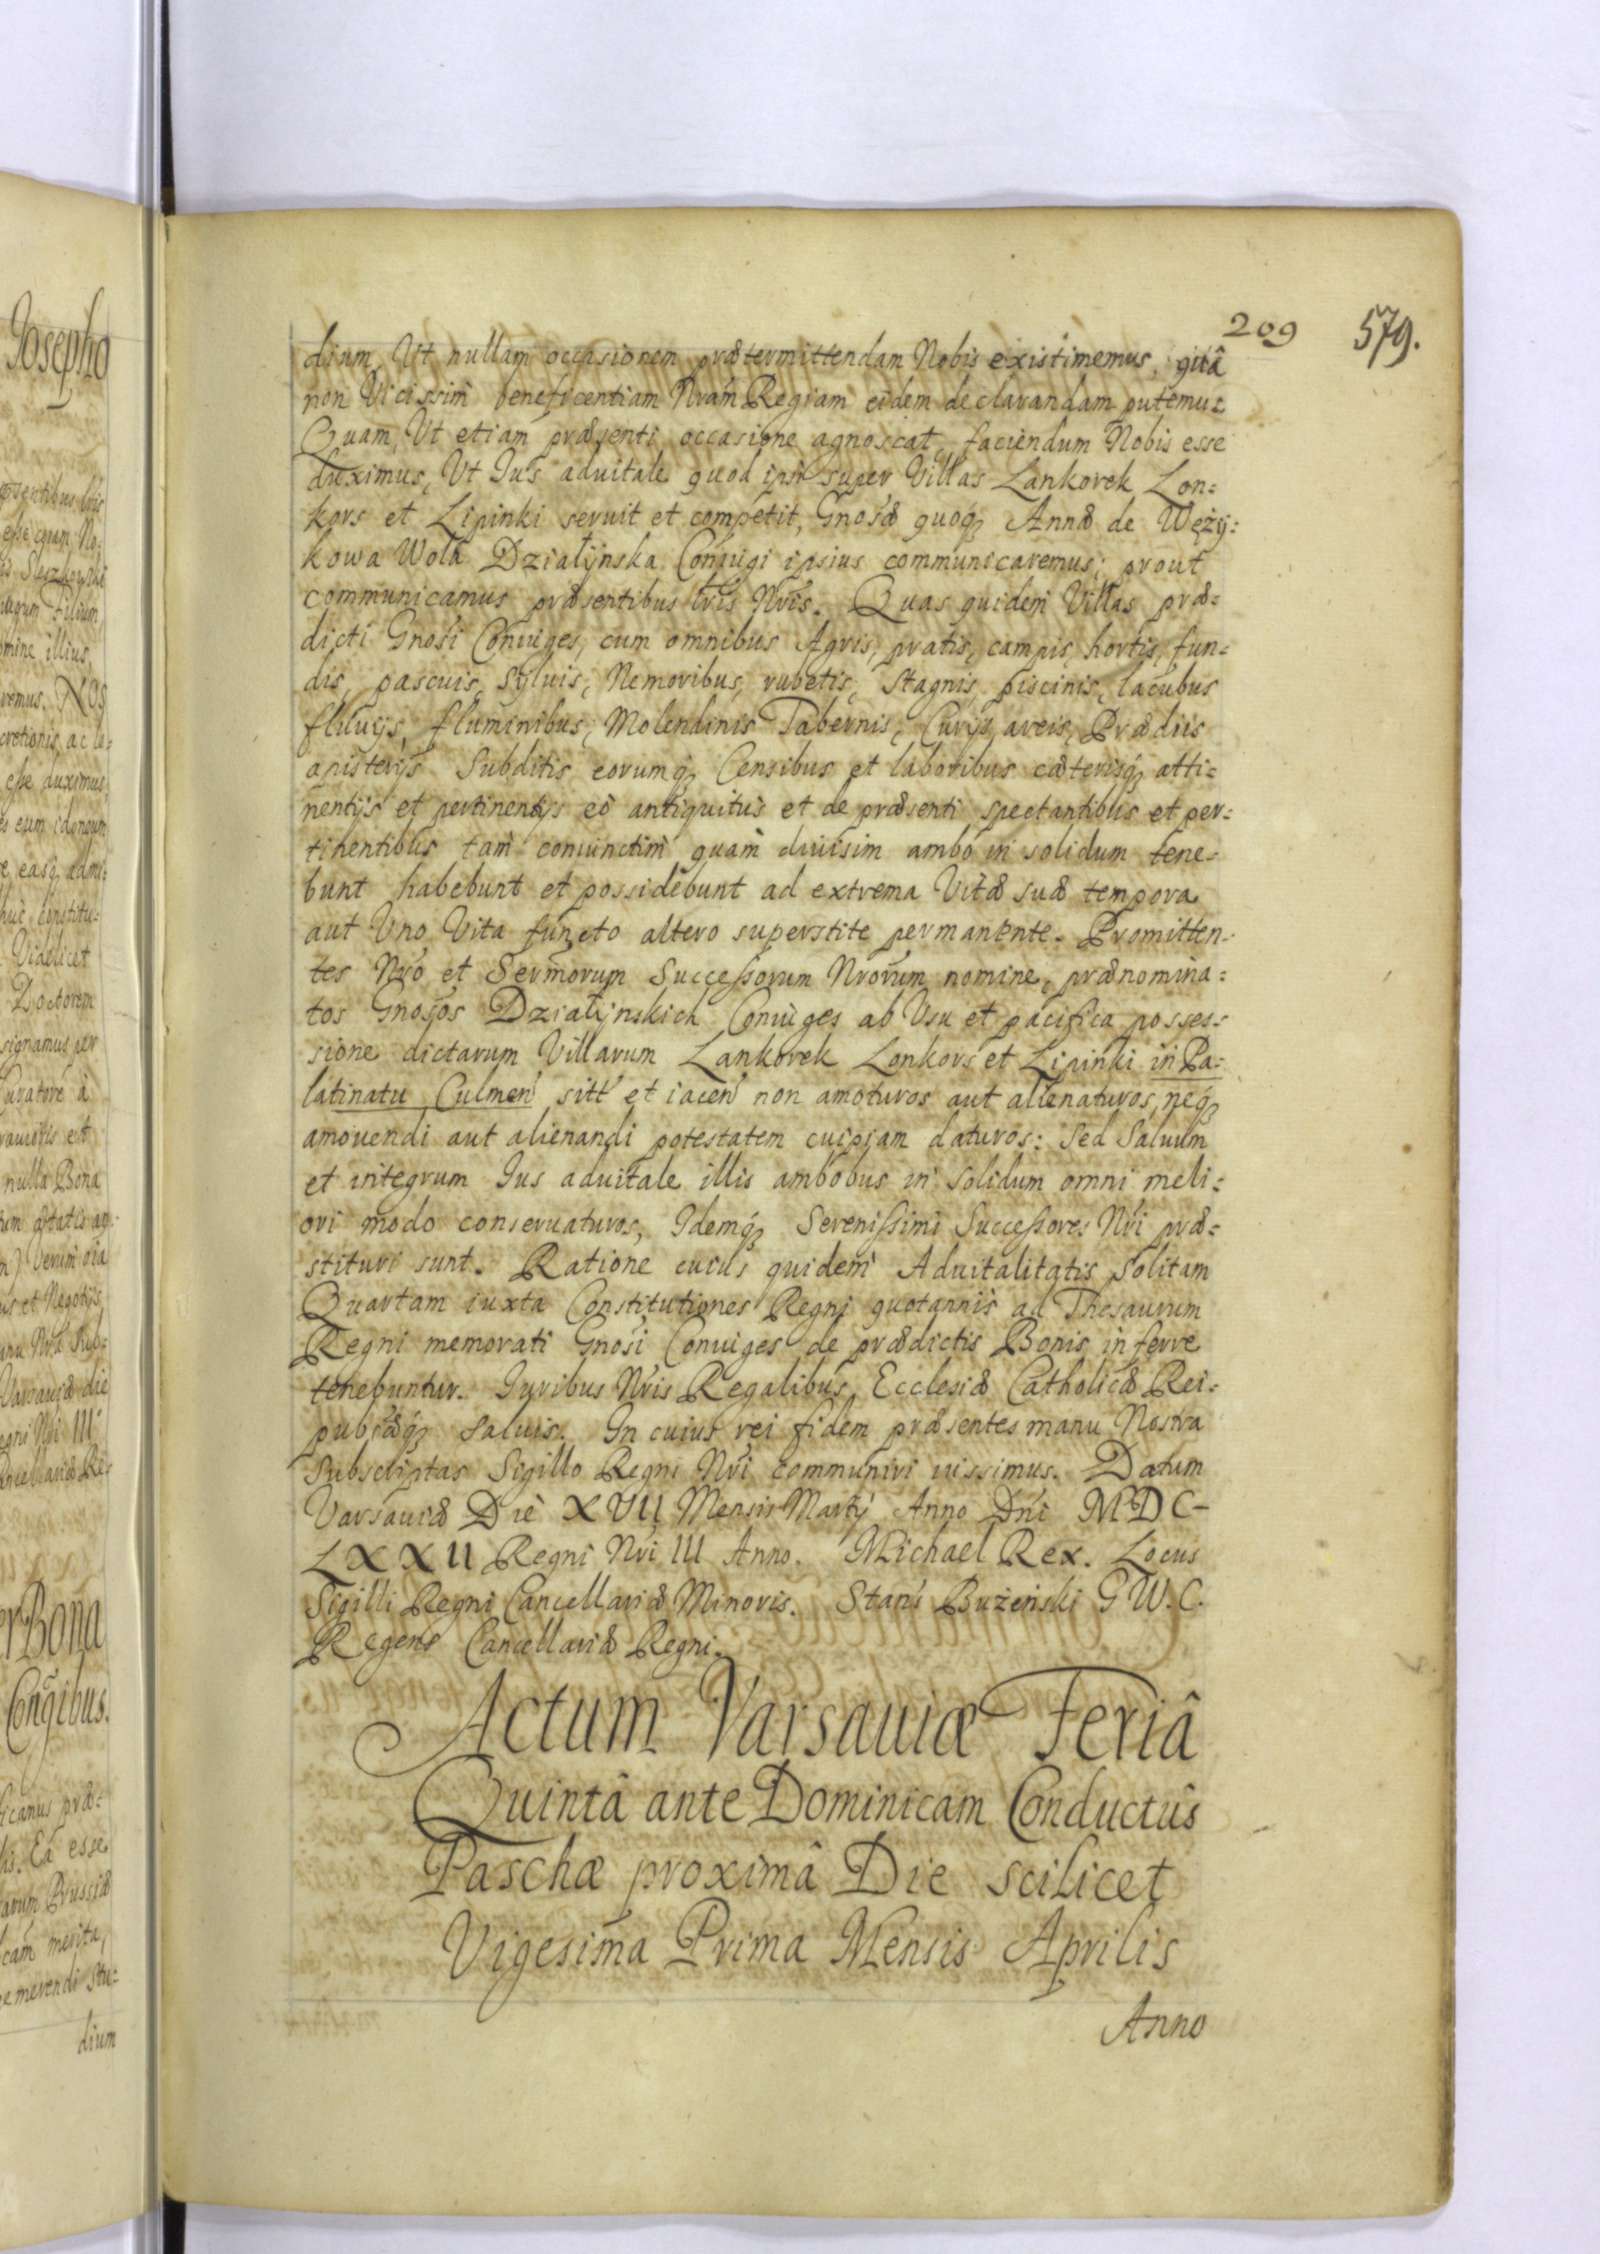 209 579.
dium, Ut nullam occasionem prætermittendam Nobis existimemus, quâ
non Vicissim beneficentiam Nram Regiam eidem declarandam putemus
Quam, Ut etiam præsenti occasione agnoscat, faciendum Nobis esse
duximus, Ut Jus aduitale quod ipsi super Villas Lankorek Lon=
kors et Lipinki seruit et competit, Gnosæ quoq Annæ de Wężij=
kowa Wola Działijnska Coniugi ipsius communicaremus; prout
communicamus præsentibus lris Nris. Quas quidem Villas præ=
dicti Gnosi Coniuges, cum omnibus Agris, pratis, campis, hortis, fun=
dis, pascuis, Syluis, Nemoribus, rubetis, Stagnis, piscinis, lacubus
fluuijs, fluminibus, Molendinis Tabernis, Curijs, areis, Prædiis
apisterijs Subditis eorumq Censibus et laboribus cæterisq atti=
nentijs et pertinentijs eò antiquitus et de præsenti spectantibus et per=
tinentibus tam coniunctim quàm diuisim ambo in solidum tene=
bunt habebunt et possidebunt ad extrema Vitæ suæ tempora
aut Uno Vita functo altero superstite permanente. Promitten=
tes Nro et Sermorum Successorum Nrorum nomine, prænomina=
tos Gnosos Działijnskich Coniuges ab Usu et pacifica posses=
sione dictarum Villarum Lankorek Lonkors et Lipinki in Pa=
latinatu Culmen sitt et iacen non amoturos aut alienaturos, neq
amouendi aut alienandi potestatem cuipiam daturos: Sed Saluum
et integrum Jus aduitale illis ambobus in solidum omni meli=
ori modo conseruaturos, Idemq Serenissimi Successores Nri præ=
stituri sunt. Ratione cuius quidem Aduitalitatis Solitam
Quartam iuxta Constitutiones Regni quotannis ad Thesaurum
Regni memorati Gnosi Coniuges de prædictis Bonis inferre
tenebuntur. Iuribus Nris Regalibus, Ecclesiæ Catholicæ Rei=
pubcæq saluis. In cuius rei fidem præsentes manu Nostra
Subscriptas Sigillo Regni Nri communiri iussimus. Datum
Varsauiæ Die XVII Mensis Martij Anno Dni MDC-
LXXII Regni Nri III Anno. Michael Rex. Locus
Sigilli Regni Cancellariæ Minoris. Stans Bużenski G W. C.
Regens Cancellariæ Regni.
Actum Varsauiæ Feriâ
Quintâ ante Dominicam Conductûs
Paschæ proximâ Die scilicet
Vigesima Prima Mensis Aprilis
Anno